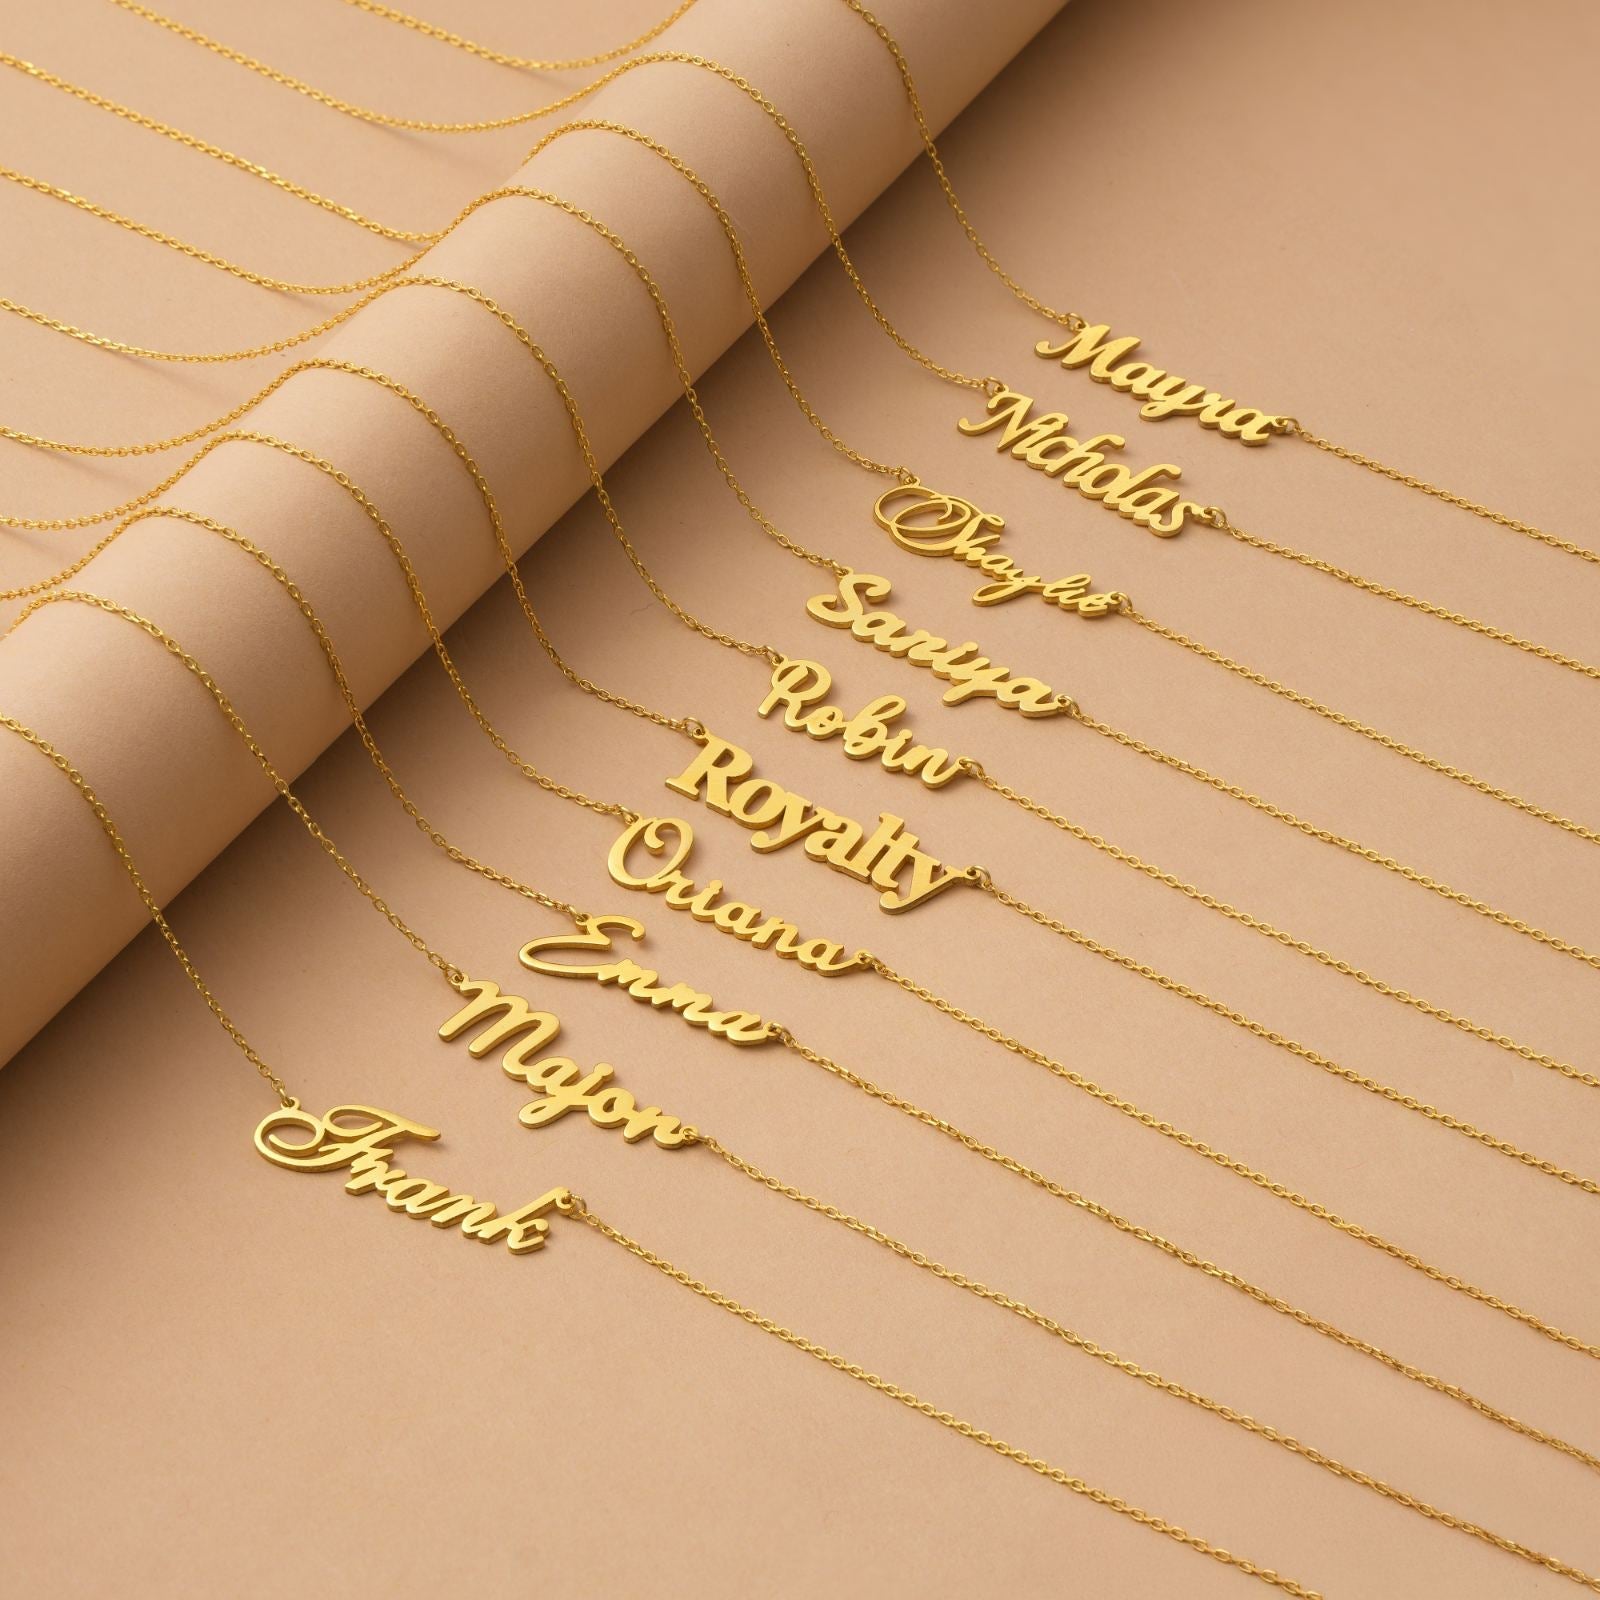 Mayra
Nicholas
Shaylie
Saniya
Robin
Royalty
Oriana
Emma
Major
Frank